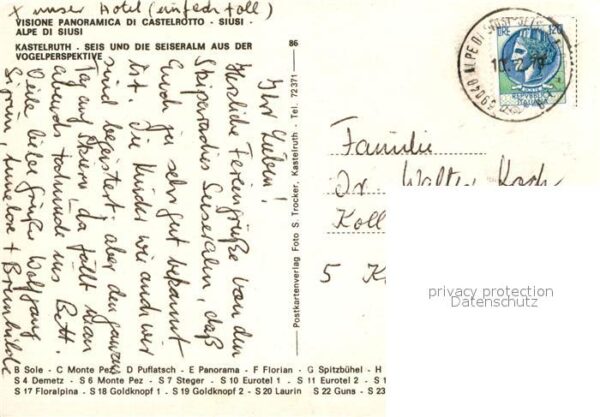 x unser Hotel (einfach toll)
VISIONE PANORAMICA DI CASTELROTTO - SIUSI -
ALPE DI SIUSI
KASTELRUTH - SEIS UND DIE SEISERALM AUS DER
VOGELPERSPEKTIVE
86
Ihr Lieben!
Herzliche Feriengrüße von dem
Skiparadies Seiseralm, das
Euch ja sehr gut bekannt
ist. Die Kinder wie auch wir
sind begeistert, aber den ganzen
Tag auf Skiern - da fällt man
abends todmüde ins Bett.
Viele liebe Grüße Wolfgang
Sigrun, Annelore + Brunhilde
Postkartenverlag Foto S. Trocker, Kastelruth - Tel. 72371
39040 ALPE DI SIUSI
LIRE 120
REPUBBLICA
ITALIANA
Familie
Dr. Walter Koch
Koll
5 K
privacy protection
Datenschutz
B Sole - C Monte Pez D Puflatsch - E Panorama - F Florian - G Spitzbühel - H
S 4 Demetz - S 6 Monte Pez - S 7 Steger - S 10 Eurotel 1 - S 11 Eurotel 2 - S 1
S 17 Floralpina - S 18 Goldknopf 1 - S 19 Goldknopf 2 - S 20 Laurin S 22 Guns - S 23